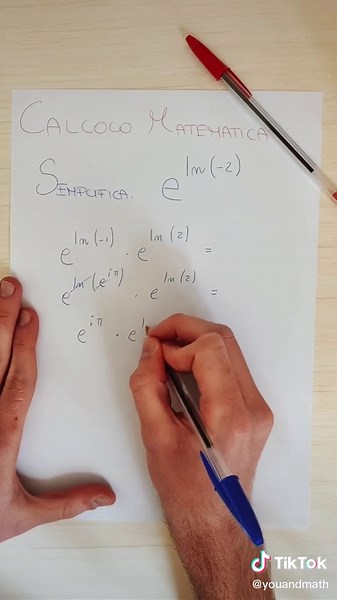 CALCOLO MATEMATICA
SEMPLIFICA: e^{ln(-2)}
e^{ln(-1)} · e^{ln(2)} =
e^{ln(e^{iπ})} · e^{ln(2)} =
e^{iπ} · e^{l
TikTok
@youandmath